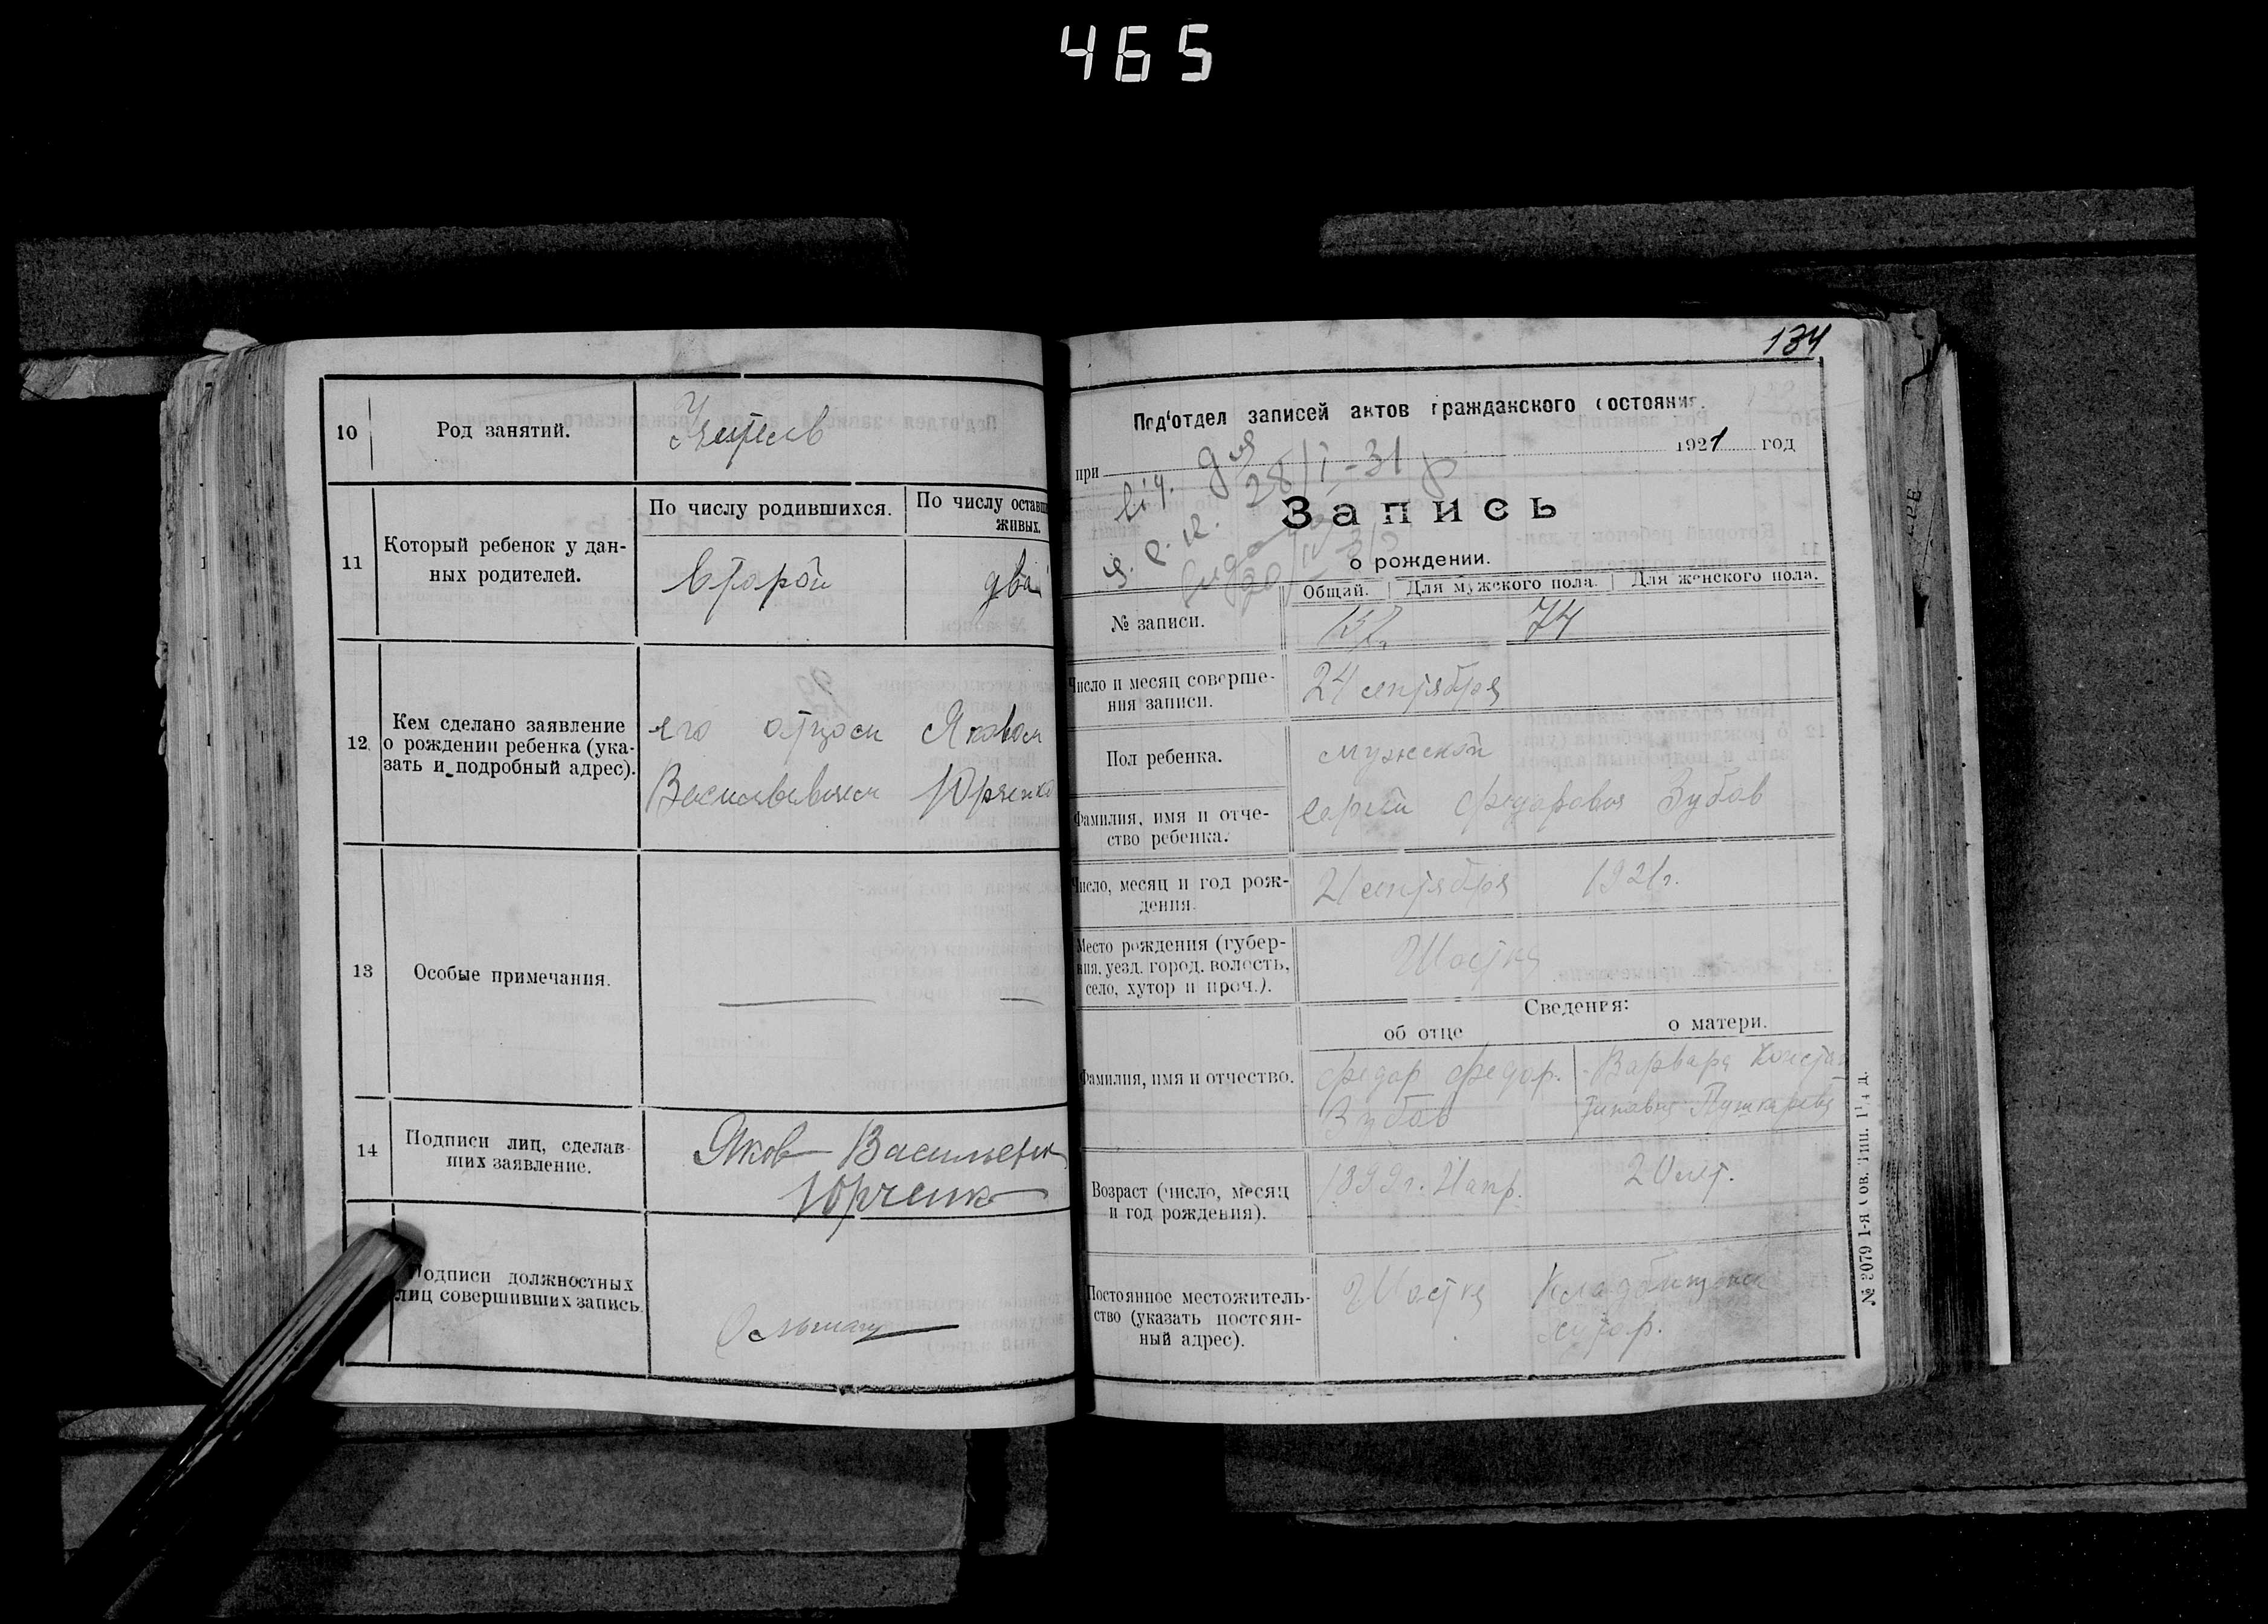 465
10
Род занятий.
Учитель
11
Который ребенок у дан-
ных родителей.
По числу родившихся.
По числу оставш
живых.
второй
два
12
Кем сделано заявление
о рождении ребенка (ука-
зать и подробный адрес).
его отцом Яковом
Васильевичем Юрченко
13
Особые примечания.
14
Подписи лиц, сделав-
ших заявление.
Яков Васильевич
Юрченко
Подписи должностных
лиц совершивших запись.
134
Под'отдел записей актов гражданского состояния.
при
1921 год
28/I-31 р
Запись
о рождении.
Общий.
Для мужского пола.
Для женского пола.
№ записи.
74
Число и месяц соверше-
ния записи.
24 сентября
Пол ребенка.
мужской
Фамилия, имя и отче-
ство ребенка.
Сергей Федорович Зубов
Число, месяц и год рож-
дения.
21 сентября 1921 г.
Место рождения (губер-
ния, уезд, город, волость,
село, хутор и проч.).
Шостка
Сведения:
об отце
о матери.
Фамилия, имя и отчество.
Федор Федор.
Зубов
Варвара Констан
тиновна Пушкарева
Возраст (число, месяц
и год рождения).
20 лет.
Постоянное местожитель-
ство (указать постоян-
ный адрес).
Шостка Кладбищенск
хутор.
№ 2079 1-я Сов. Тип. 1¼ д.